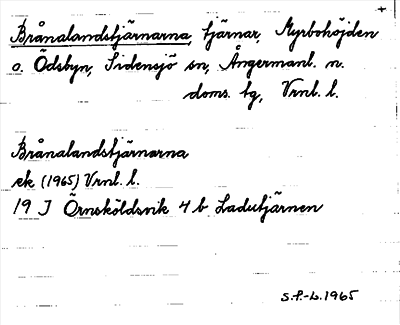 Brånalandstjärnarna, tjärnar, Myrbohöjden
o. Ödsbyn, Sidensjö sn, Ångermanl. n.
doms. tg, Vrnl. l.
Brånalandstjärnarna
ek (1965) Vrnl. l.
19 J Örnsköldsvik 4 b Ladutjärnen
S.P.-L. 1965